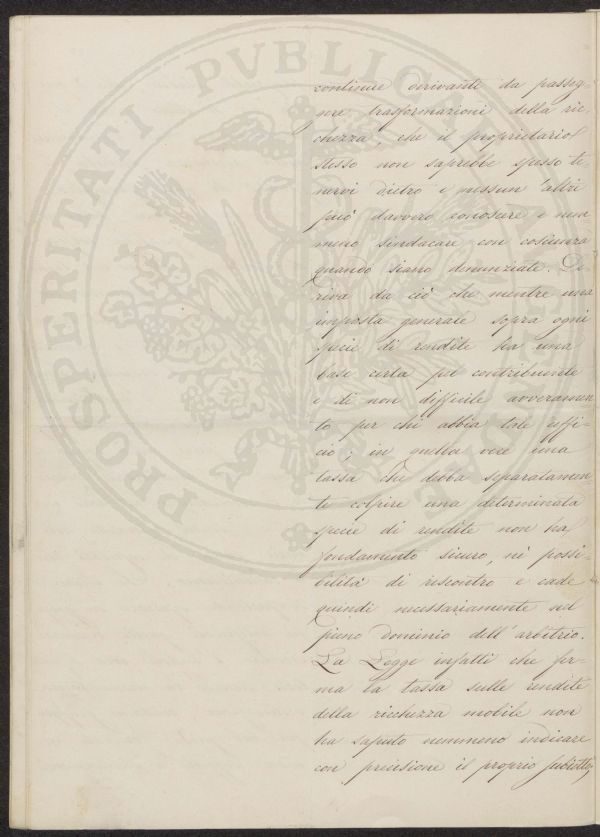 PROSPERITATI PVBLICAE
continue derivanti da passeg-
gere trasformazioni della ric-
chezza, che il proprietario
stesso non saprebbe spesso te-
nervi dietro e nessun altri
può davvero conoscere e nem
meno sindacare con coscienza
quando siano denunziate. De-
riva da ciò che mentre una
imposta generale sopra ogni
specie di rendite ha una
base certa pel contribuente
e di non difficile avveramen-
to per chi abbia tale uffi-
cio; in quella vece una
tassa che debba separatamen-
te colpire una determinata
specie di rendite non ha
fondamento sicuro, nè possi-
bilità di riscontro e cade
quindi necessariamente nel
pieno dominio dell'arbitrio.
La Legge infatti che for-
ma la tassa sulle rendite
della ricchezza mobile non
ha saputo nemmeno indicare
con precisione il proprio subiotto,